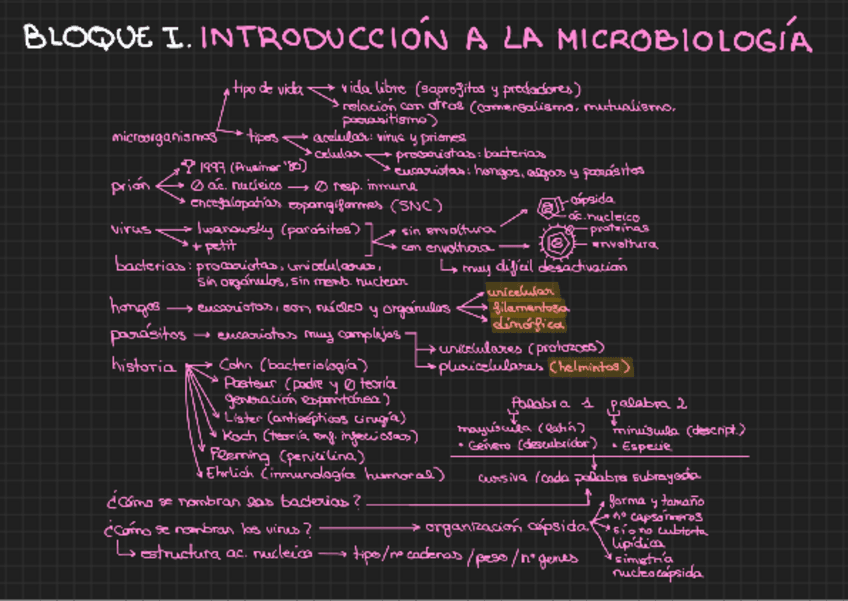 BLOQUE I. INTRODUCCIÓN A LA MICROBIOLOGÍA
tipo de vida → vida libre (saprofitos y predadores)
relación con otros (comensalismo, mutualismo,
parasitismo)
microorganismos → tipos → acelular: virus y priones
celular → procariotas: bacterias
eucariotas: hongos, algas y parásitos
1997 (Prusiner '80)
prión → ∅ ác. nucleico → ∅ resp. inmune
encefalopatías espongiformes (SNC)
virus → Iwanowsky (parásitos)
+ petit
sin envoltura
con envoltura
cápsida
ác. nucleico
proteínas
envoltura
↳ muy difícil desactivación
bacterias: procariotas, unicelulares,
sin orgánulos, sin memb. nuclear
hongos → eucariotas, con núcleo y orgánulos
unicelular
filamentosa
dimórfica
parásitos → eucariotas muy complejos
unicelulares (protozoos)
pluricelulares (helmintos)
historia → Cohn (bacteriología)
Pasteur (padre y ∅ teoría
generación espontánea)
Lister (antisépticos cirugía)
Koch (teoría enf. infecciosas)
Fleming (penicilina)
Ehrlich (inmunología humoral)
Palabra 1 palabra 2
mayúscula (latín) minúscula (descript.)
• Género (descubridor) • Especie
cursiva / cada palabra subrayada
¿Cómo se nombran las bacterias?
¿Cómo se nombran los virus? → organización cápsida
forma y tamaño
nº capsómeros
sí o no cubierta
lipídica
simetría
nucleocápsida
↳ estructura ac. nucleico → tipo/nº cadenas /peso /nº genes